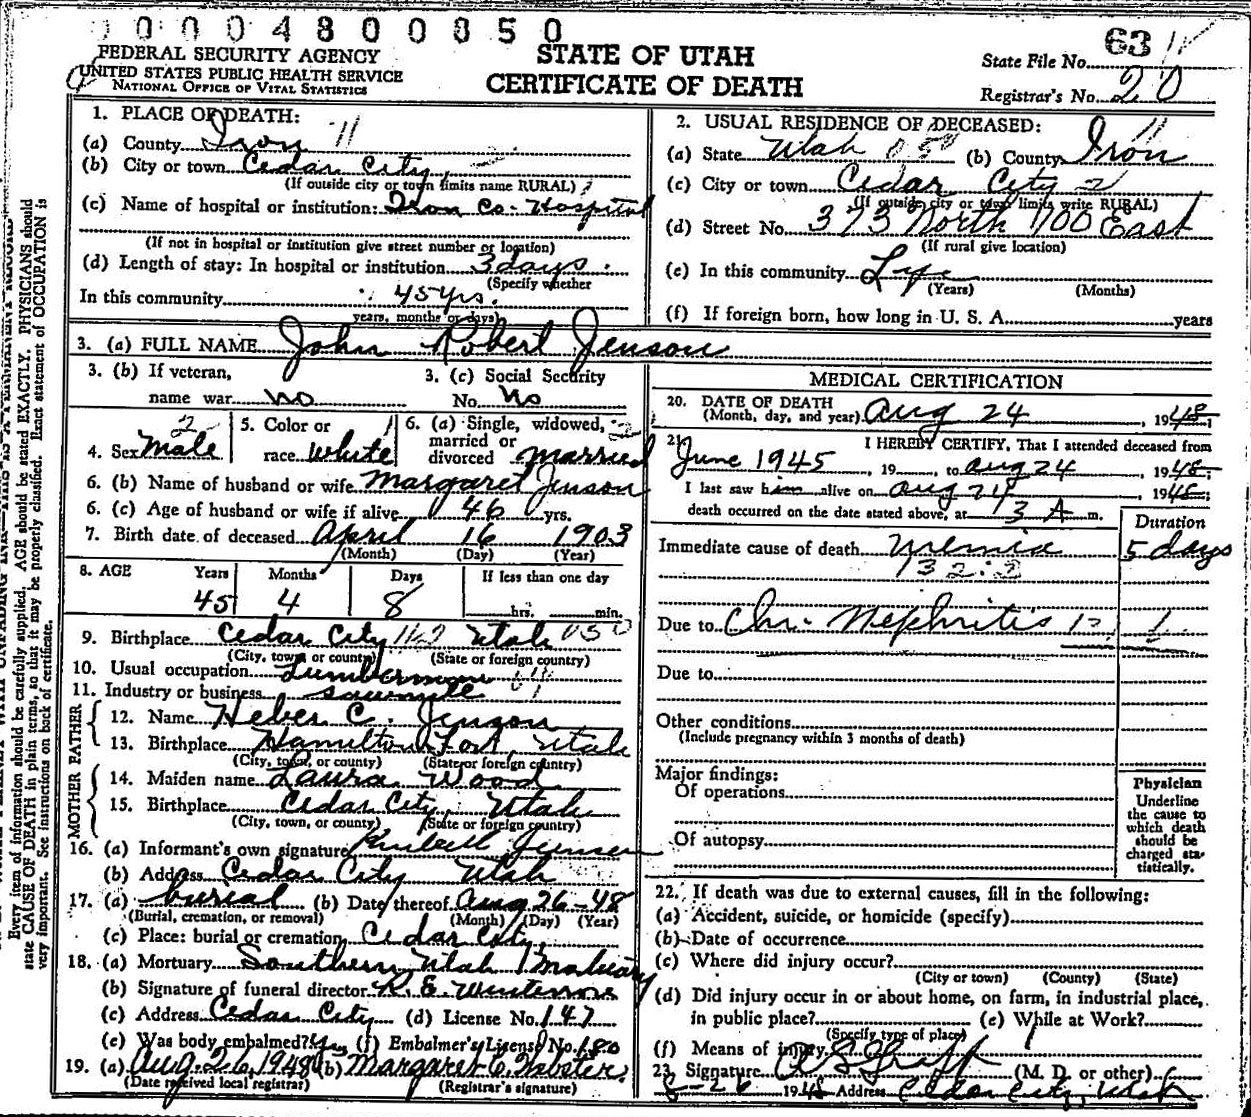 00004800850
FEDERAL SECURITY AGENCY
UNITED STATES PUBLIC HEALTH SERVICE
NATIONAL OFFICE OF VITAL STATISTICS
STATE OF UTAH
CERTIFICATE OF DEATH
State File No. 63
Registrar's No. 20
1. PLACE OF DEATH:
(a) County Iron 11
(b) City or town Cedar City,
(If outside city or town limits name RURAL)
(c) Name of hospital or institution: Iron Co. Hospital
(If not in hospital or institution give street number or location)
(d) Length of stay: In hospital or institution 3 days.
(Specify whether
In this community 45 yrs.
years, months or days)
2. USUAL RESIDENCE OF DECEASED:
(a) State Utah 050 (b) County Iron 11
(c) City or town Cedar City 2
(If outside city or town limits write RURAL)
(d) Street No. 373 North 100 East
(If rural give location)
(e) In this community Life
(Years) (Months)
(f) If foreign born, how long in U. S. A. years
3. (a) FULL NAME John Robert Jenson
3. (b) If veteran,
name war no
3. (c) Social Security
No. No
4. Sex Male 2
5. Color or
race White
6. (a) Single, widowed, 2
married or
divorced married
6. (b) Name of husband or wife Margaret Jenson
6. (c) Age of husband or wife if alive 46 yrs.
7. Birth date of deceased April 16 1903
(Month) (Day) (Year)
8. AGE Years Months Days If less than one day
45 4 8 hrs. min.
9. Birthplace Cedar City Utah 050
(City, town or county) (State or foreign country)
10. Usual occupation Lumberman
11. Industry or business sawmill
FATHER
12. Name Heber C. Jenson
13. Birthplace Hamilton Fort, Utah
(City, town, or county) (State or foreign country)
MOTHER
14. Maiden name Laura Wood
15. Birthplace Cedar City, Utah
(City, town, or county) (State or foreign country)
16. (a) Informant's own signature Jensen
(b) Address Cedar City Utah
17. (a) burial (b) Date thereof Aug 26-48
(Burial, cremation, or removal) (Month) (Day) (Year)
(c) Place: burial or cremation Cedar City,
18. (a) Mortuary Southern Utah Mortuary
(b) Signature of funeral director R. E.
(c) Address Cedar City (d) License No. 147
(e) Was body embalmed? Yes (f) Embalmer's License No. 180
19. (a) Aug. 26, 1948 (b) Margaret C. Webster.
(Date received local registrar) (Registrar's signature)
MEDICAL CERTIFICATION
20. DATE OF DEATH
(Month, day, and year) Aug 24, 1948
21. I HEREBY CERTIFY, That I attended deceased from
June 1945, 19 , to Aug 24, 1948;
I last saw him alive on Aug 24, 1948;
death occurred on the date stated above, at 3 A m.
Duration
Immediate cause of death Uremia 5 days
132:2
Due to Chr. Nephritis
Due to
Other conditions
(Include pregnancy within 3 months of death)
Major findings:
Of operations
Of autopsy
Physician
Underline
the cause to
which death
should be
charged sta-
tistically.
22. If death was due to external causes, fill in the following:
(a) Accident, suicide, or homicide (specify)
(b) Date of occurrence
(c) Where did injury occur?
(City or town) (County) (State)
(d) Did injury occur in or about home, on farm, in industrial place,
in public place? (e) While at Work?
(Specify type of place)
(f) Means of injury
23. Signature (M. D. or other)
8-26 1948 Address Cedar City, Utah
Every item of information should be carefully supplied. AGE should be stated EXACTLY. PHYSICIANS should
state CAUSE OF DEATH in plain terms, so that it may be properly classified. Exact statement of OCCUPATION is
very important. See instructions on back of certificate.